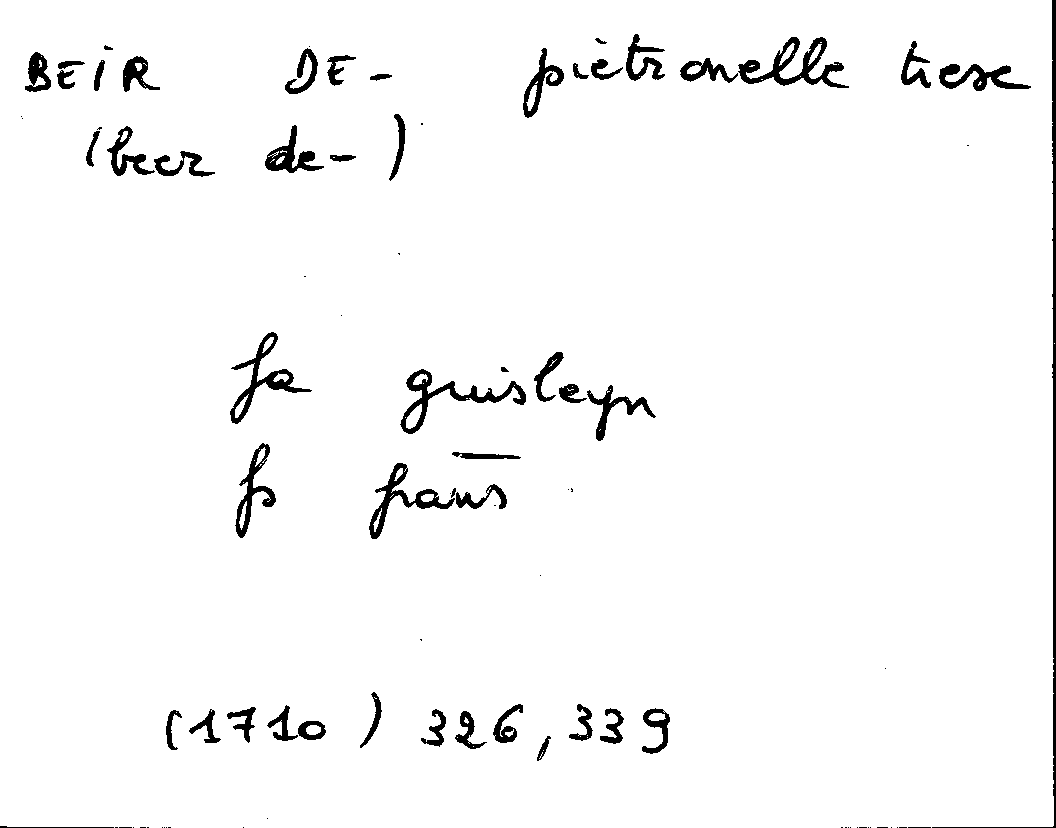 BEIR DE- pietronelle trese
(beer de-)
fa guisleyn
fs frans
(1710) 326, 339